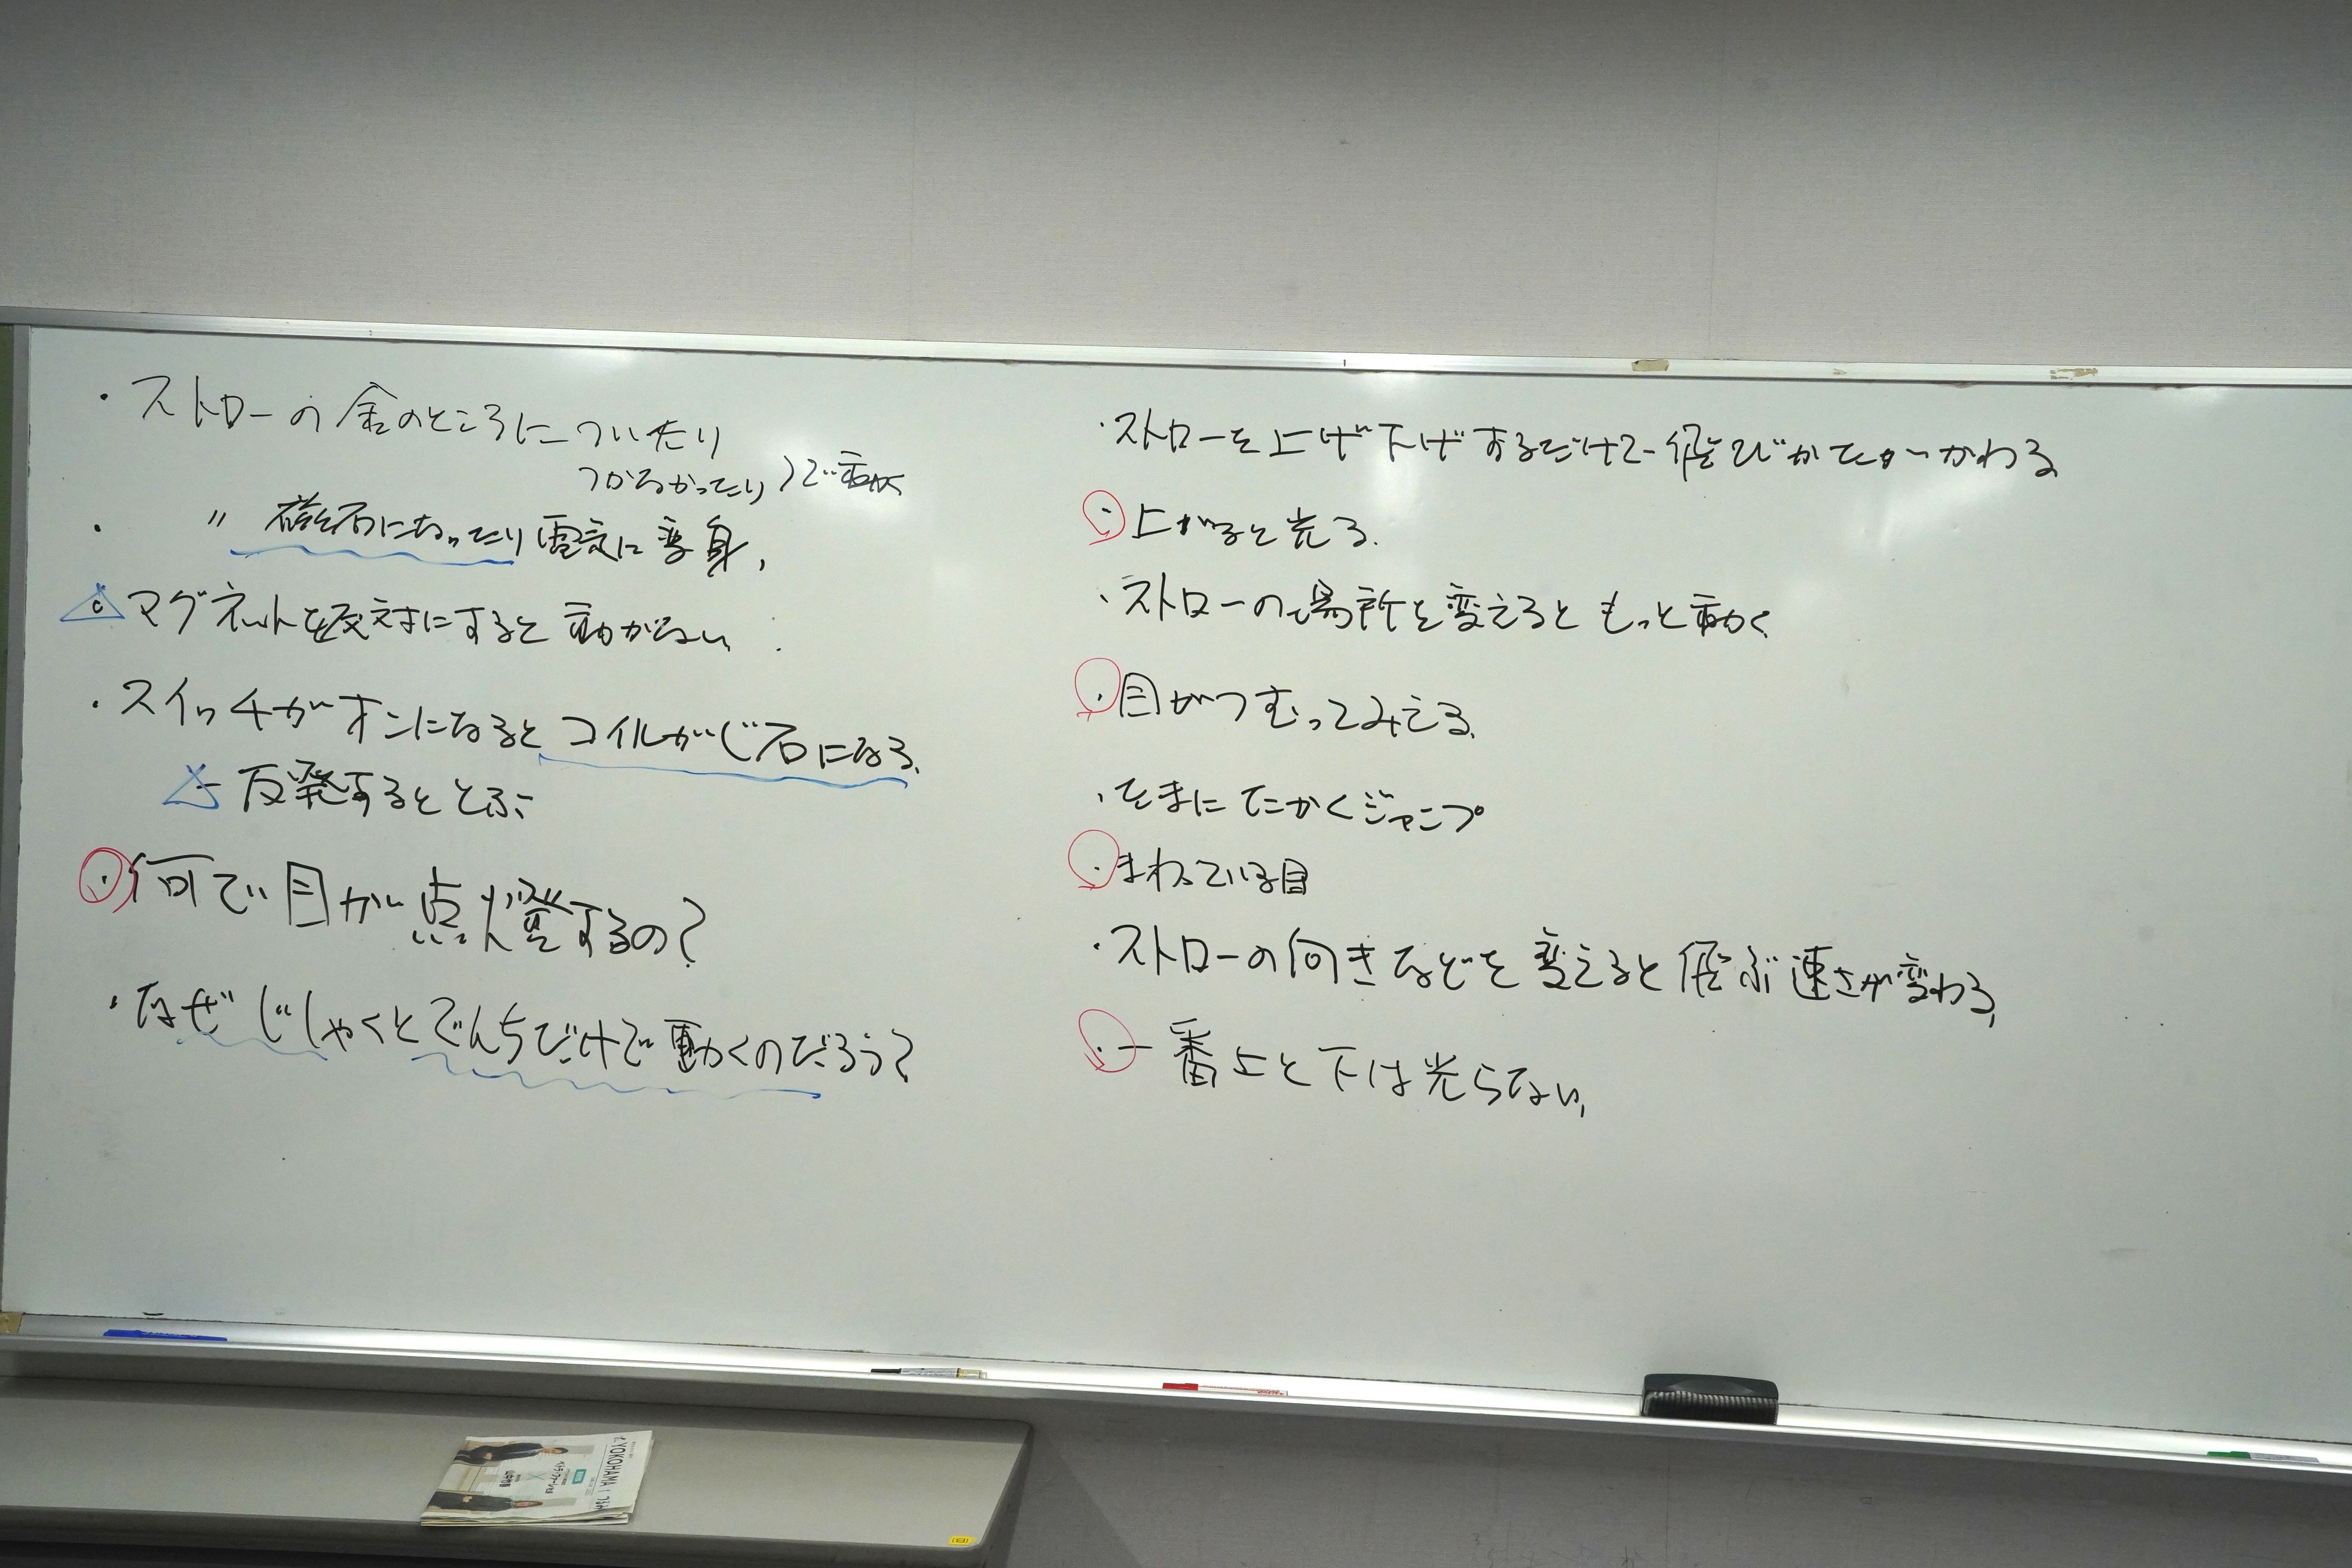 ・ストローの金のところについたり
つかなかったり)で動く
・ 〃 磁石になったり電気に変身、
・マグネットを反対にすると動かない
・スイッチがオンになるとコイルがじ石になる、
・反発するととぶ
・何で目が点燈するの?
・なぜじしゃくとでんちだけで動くのだろう?
・ストローを上げ下げするだけで飛びかたがかわる
・上がると光る.
・ストローの場所を変えるともっと動く
・目がつむってみえる
・たまにたかくジャンプ
・まわっている目
・ストローの向きなどを変えると飛ぶ速さが変わる、
・一番上と下は光らない、
YOKOHAMA